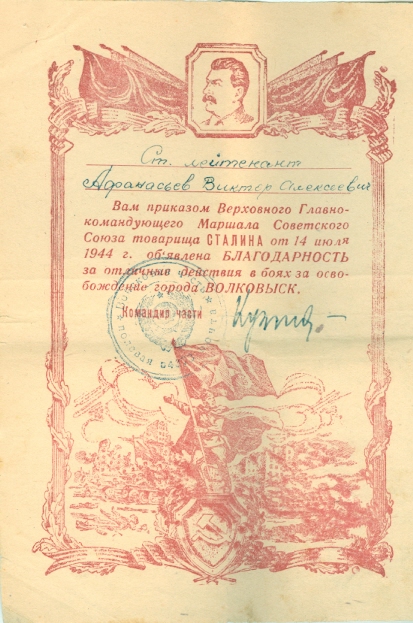 Ст. лейтенант
Афанасьев Виктор Алексеевич
Вам приказом Верховного Главно-
командующего Маршала Советского
Союза товарища СТАЛИНА от 14 июля
1944 г. об'явлена БЛАГОДАРНОСТЬ
за отличные действия в боях за осво-
бождение города ВОЛКОВЫСК.
Командир части